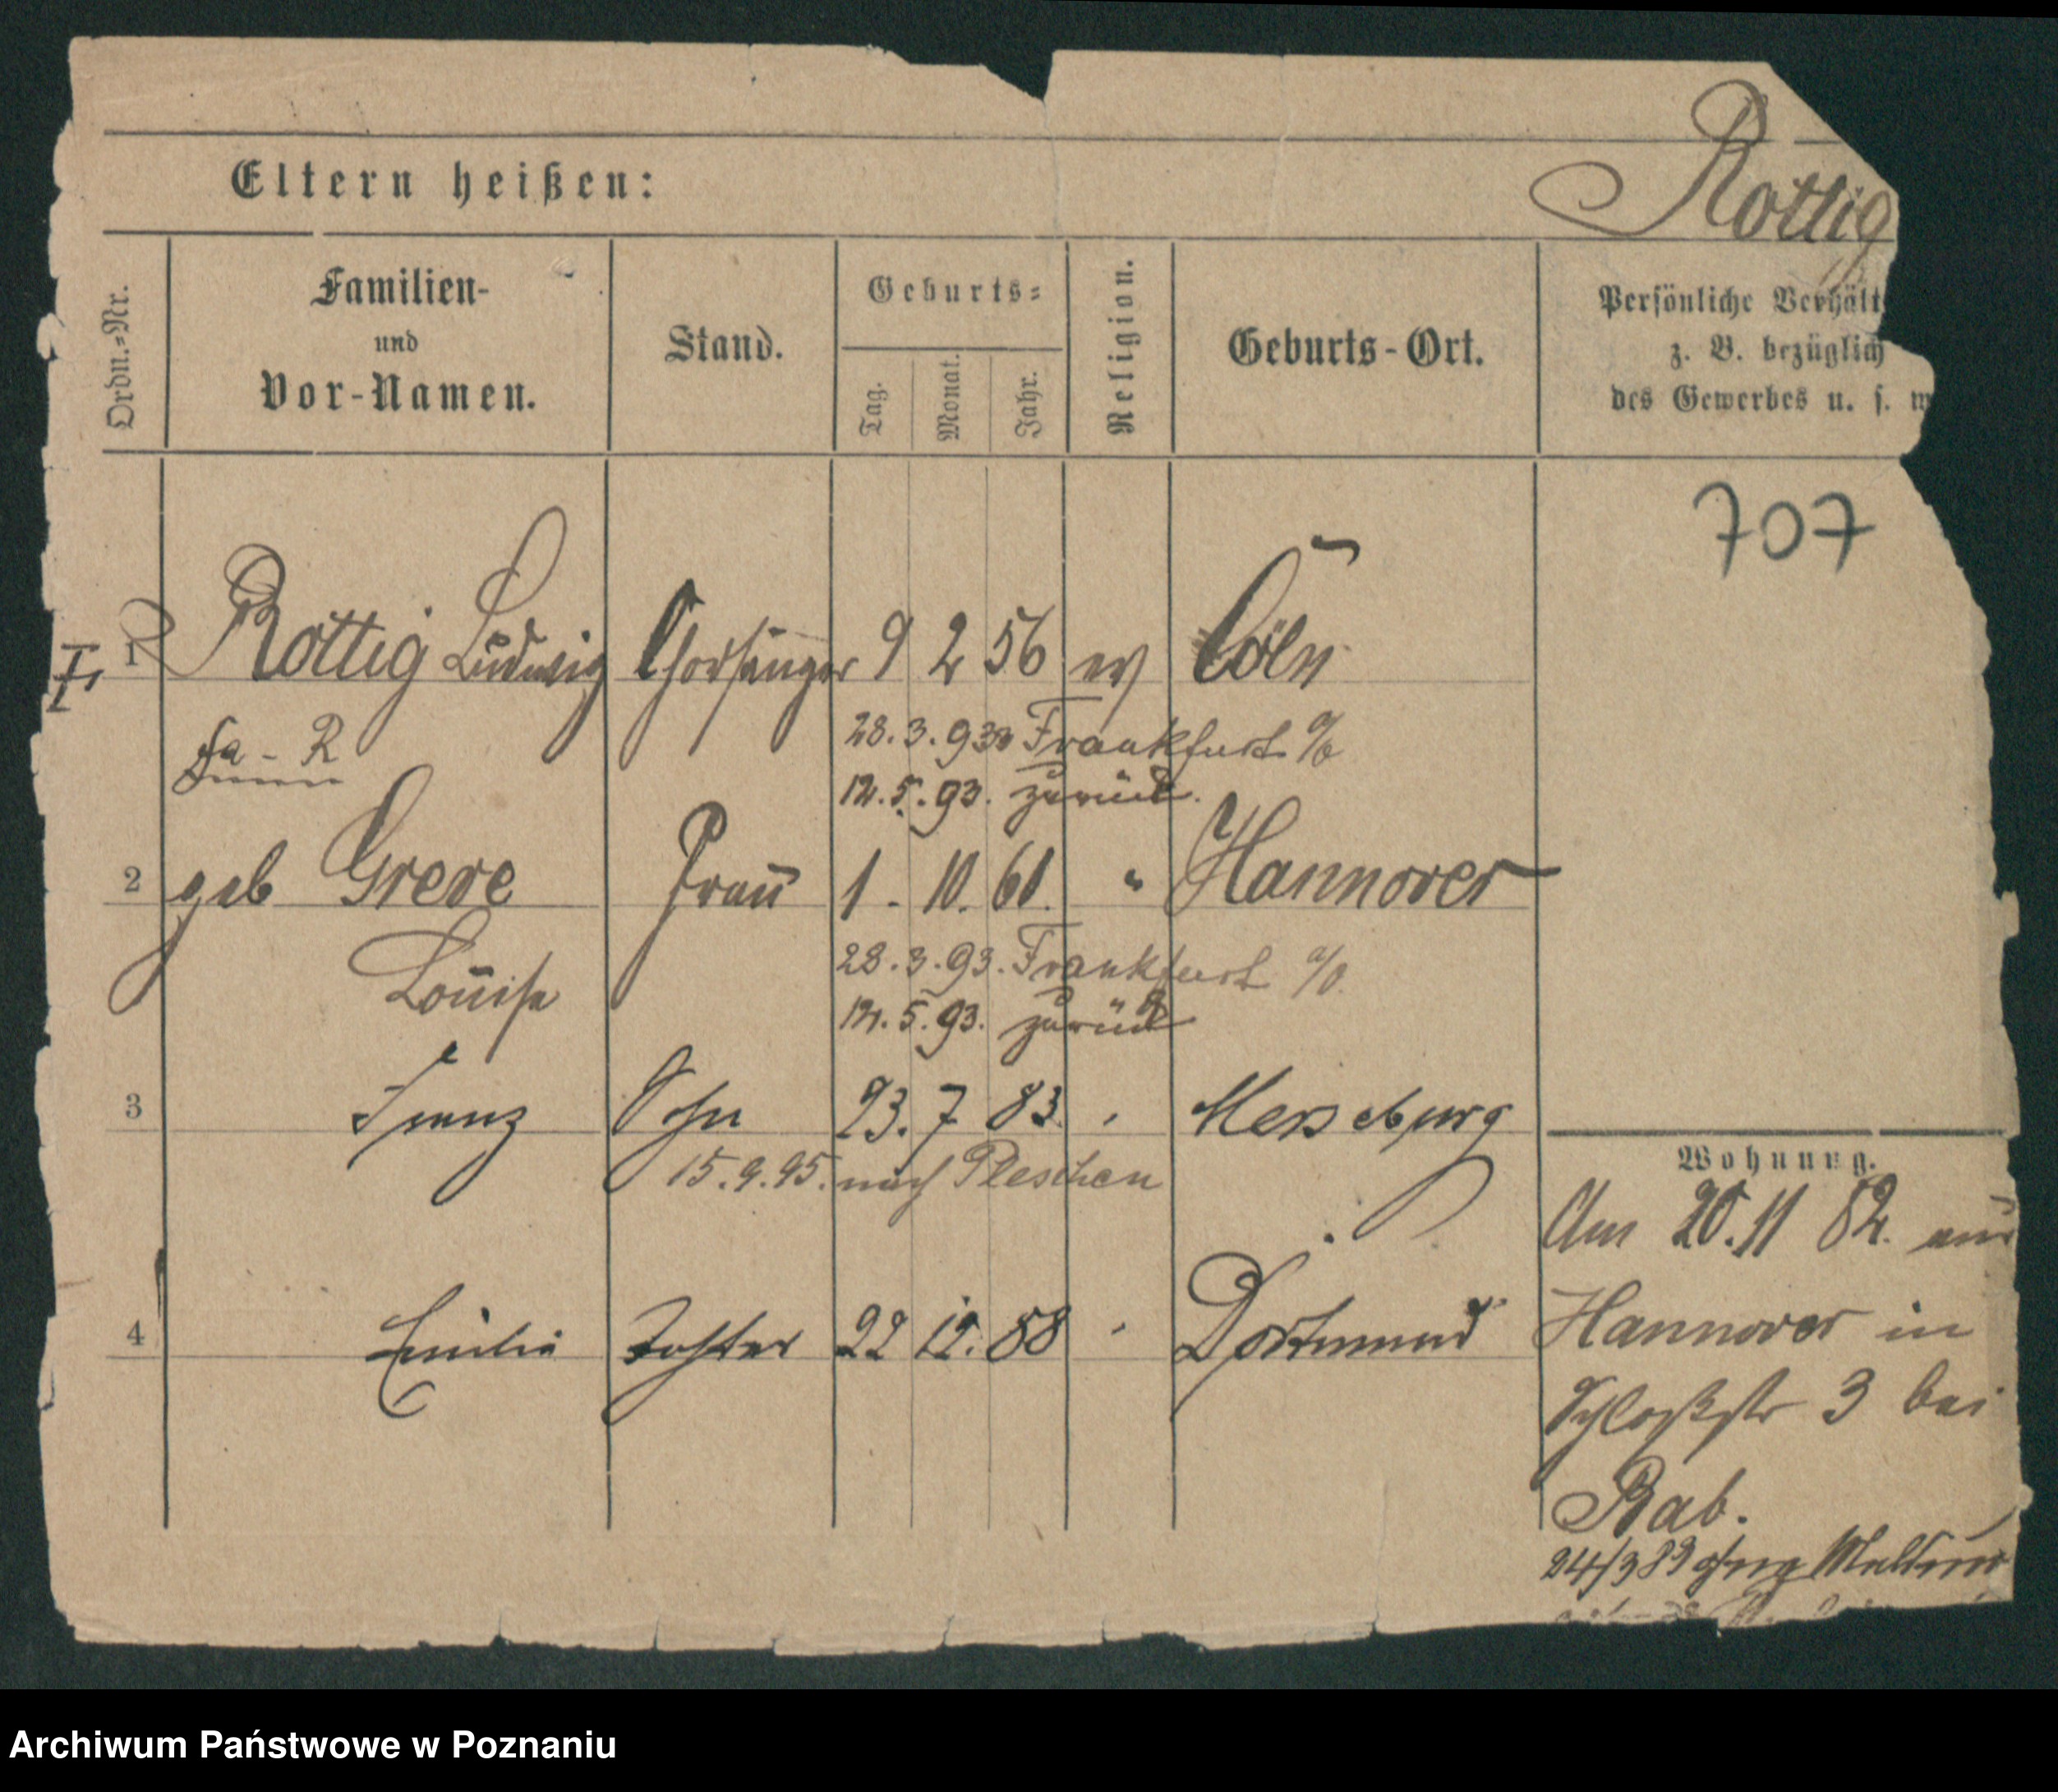 Rottig
Eltern heißen:
Ordn.-Nr.
Familien-
und
Vor-Namen.
Stand.
Geburts-
Tag.
Monat.
Jahr.
Religion.
Geburts-Ort.
Persönliche Verhält
z. B. bezüglich
des Gewerbes u. s. w
707
1 Rottig Ludwig Chorsänger 9 2 56 ev Cöln
Fa - R
28.3.93 Frankfurt a/O
12.5.93. zurück.
2 geb Greve Frau 1. 10. 61. " Hannover
Louise
28.3.93. Frankfurt a/O.
12.5.93. zurück
3 Franz Sohn 23. 7 83 Merseburg
15.9.95. nach Pleschen
4 Emilie Tochter 22 12. 88 Dortmund
Wohnung.
Am 20.11 82. aus
Hannover in
Schloßstr 3 bei
Rab.
24/3 83